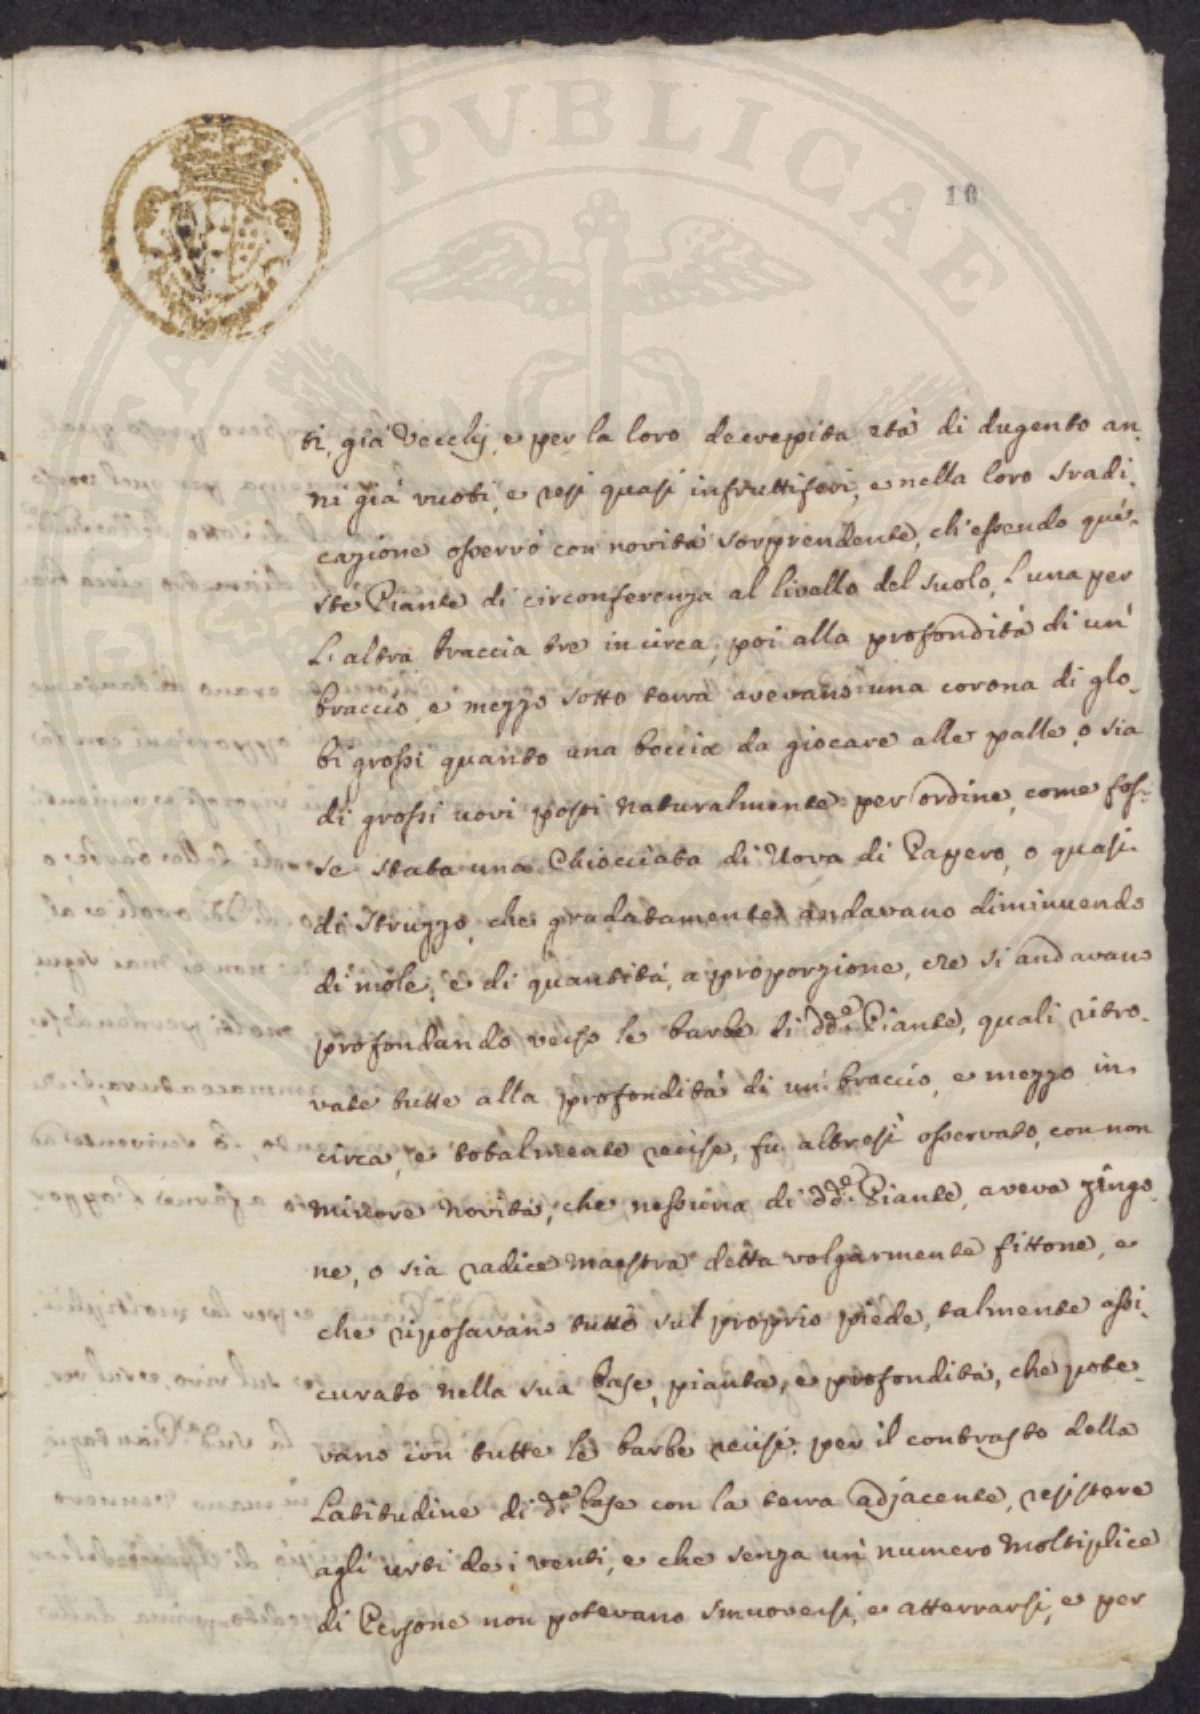 PVBLICAE
10
ti, già Vecchj, e per la loro decrepita età di dugento an-
ni già vuoti, e resi quasi infruttiferi, e nella loro sradi-
cazione osservò con novità sorprendente, ch'essendo que-
ste Piante di circonferenza al livello del suolo, l'una per
l'altra braccia tre in circa, poi alla profondità di un
braccio, e mezzo sotto terra avevano una corona di glo-
bi grossi quanto una boccia da giocare alle palle, o sia
di grossi uovi posti naturalmente per ordine, come fos-
se stata una Chiocciata di Uova di Papero, o quasi
di Struzzo, che gradatamente andavano diminuendo
di mole, e di quantità, a proporzione, che si andavano
profondando verso le barbe di dde. Piante, quali ritro-
vate tutte alla profondità di un braccio, e mezzo in-
circa, e totalmente recise, fu altresì osservato, con non
minore novità, che nessuna di dde. Piante, aveva zingo-
ne, o sia radice maestra detta volgarmente fittone, e
che riposavano tutte sul proprio piede, talmente assi-
curato nella sua base, pianta, e profondità, che pote-
vano con tutte le barbe recise per il contrasto della
Latitudine di da. base con la terra adjacente, resistere
agli urti de i venti, e che senza un numero moltiplice
di Persone non potevano smuoversi, e atterrarsi, e per